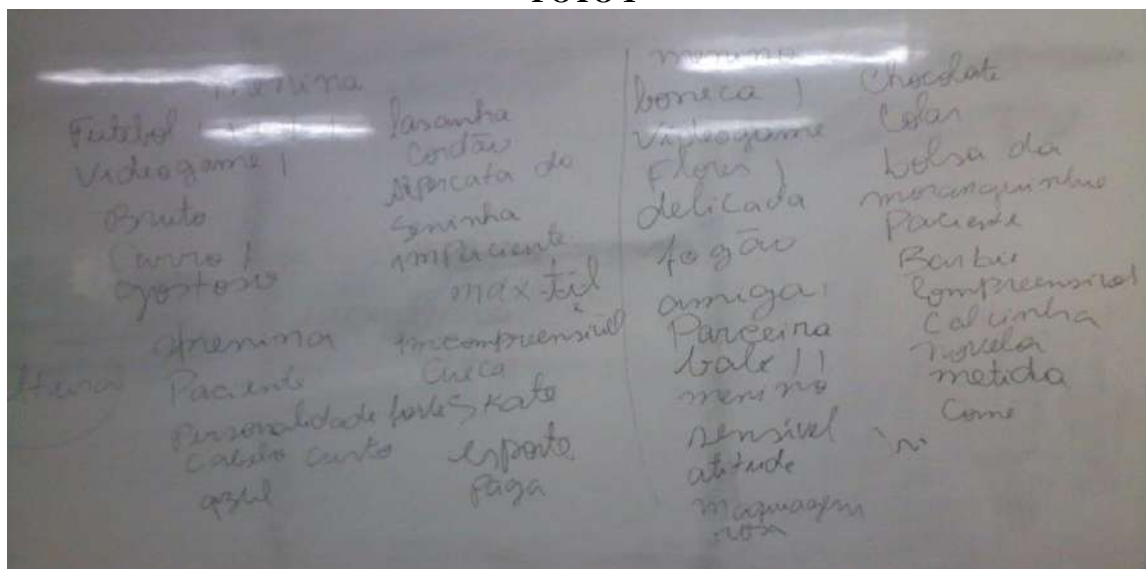 menina
Futebol
Videogame |
Bruto
Carro |
gostoso
menina
Paciente
Personalidade forte
Cabelo curto
azul
lasanha
Cordão
alpercata do
Seninha
impaciente
max-til
incompreensível
Cueca
Skate
esporte
Paga
menino
boneca |
Videogame
Flores |
delicada
fogão
amiga
Parceira
balé ||
menino
sensível
atitude
maquiagem
rosa
Chocolate
Colar
bolsa da
moranguinho
Paciente
Barbie
Compreensivel
Calcinha
novela
metida
Come